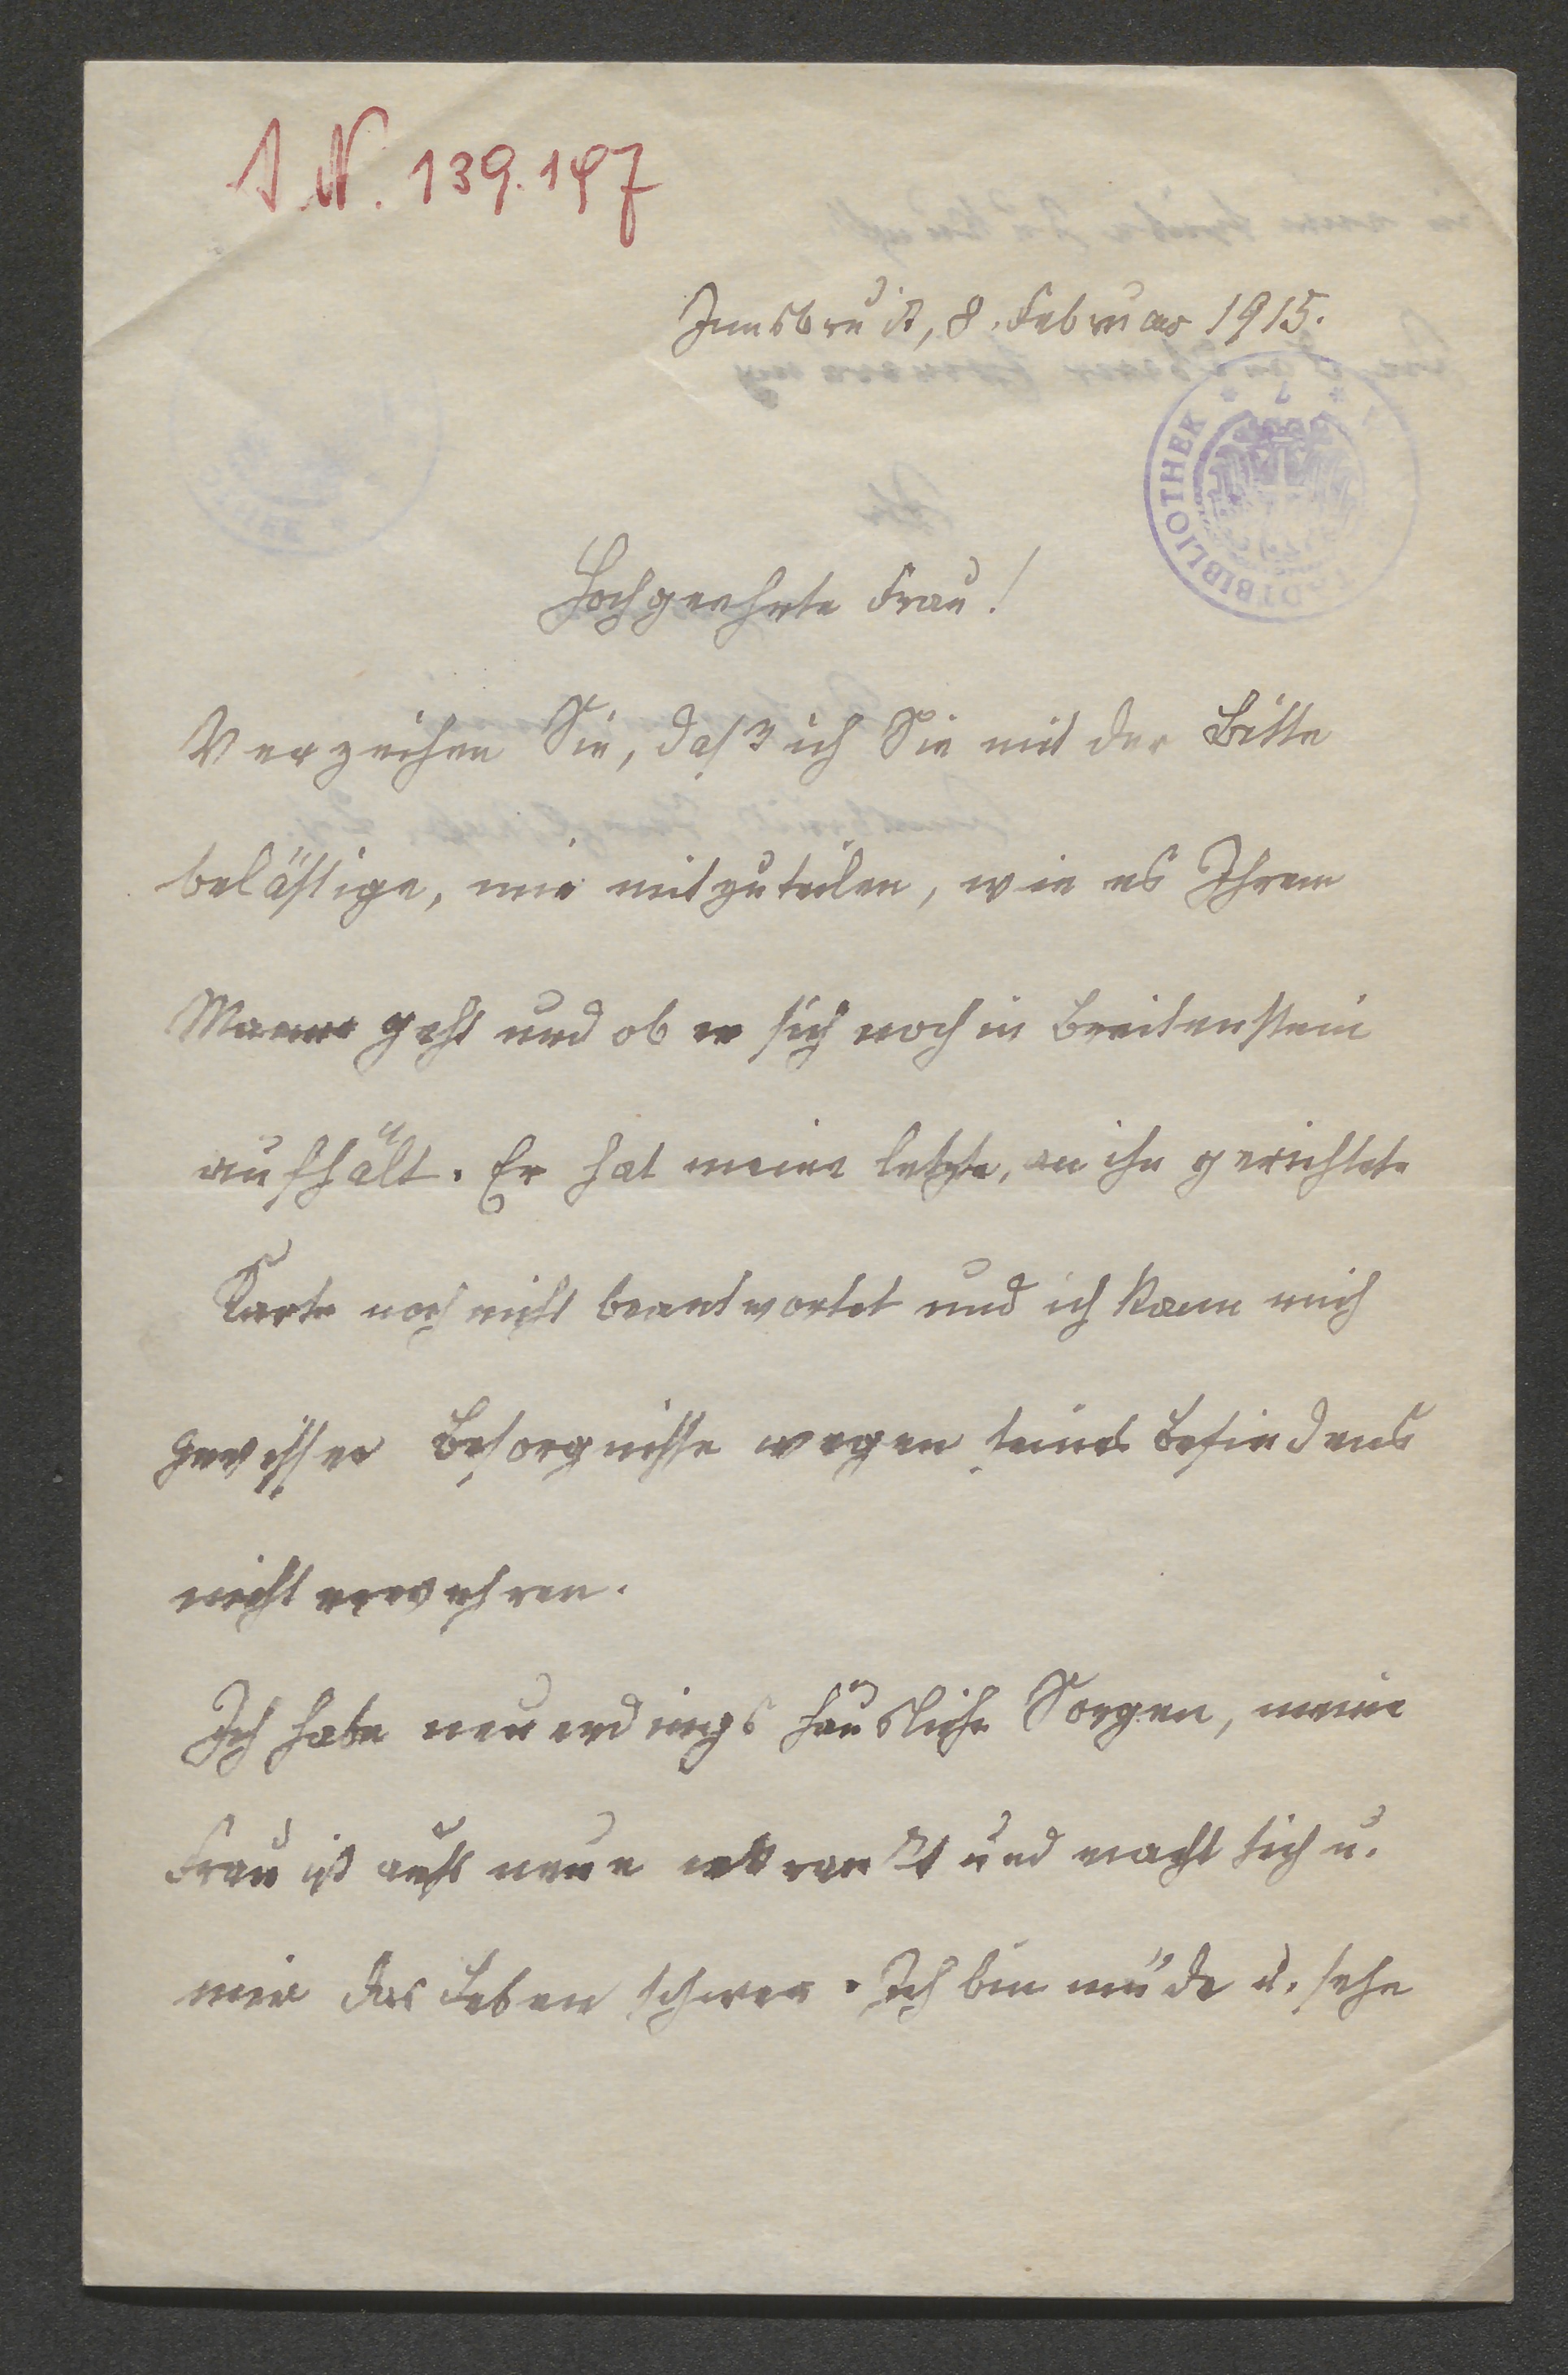 I.N. 139.147
Innsbruck, 8. Februar 1915.
BIBLIOTHEK
Hochgeehrte Frau!
Verzeihen Sie, daß ich Sie mit der Bitte
belästige, mir mitzuteilen, wie es Ihrem
Manne geht und ob er sich noch in Breitenstein
aufhält. Er hat meine letzte, an ihn gerichtete
Karte noch nicht beantwortet und ich kann mich
gewisser Besorgnisse wegen seines Befindens
nicht erwehren.
Ich habe neuerdings häusliche Sorgen, meine
Frau ist aufs neue erkrankt und macht sich u.
mir das Leben schwer. Ich bin müde u. sehe